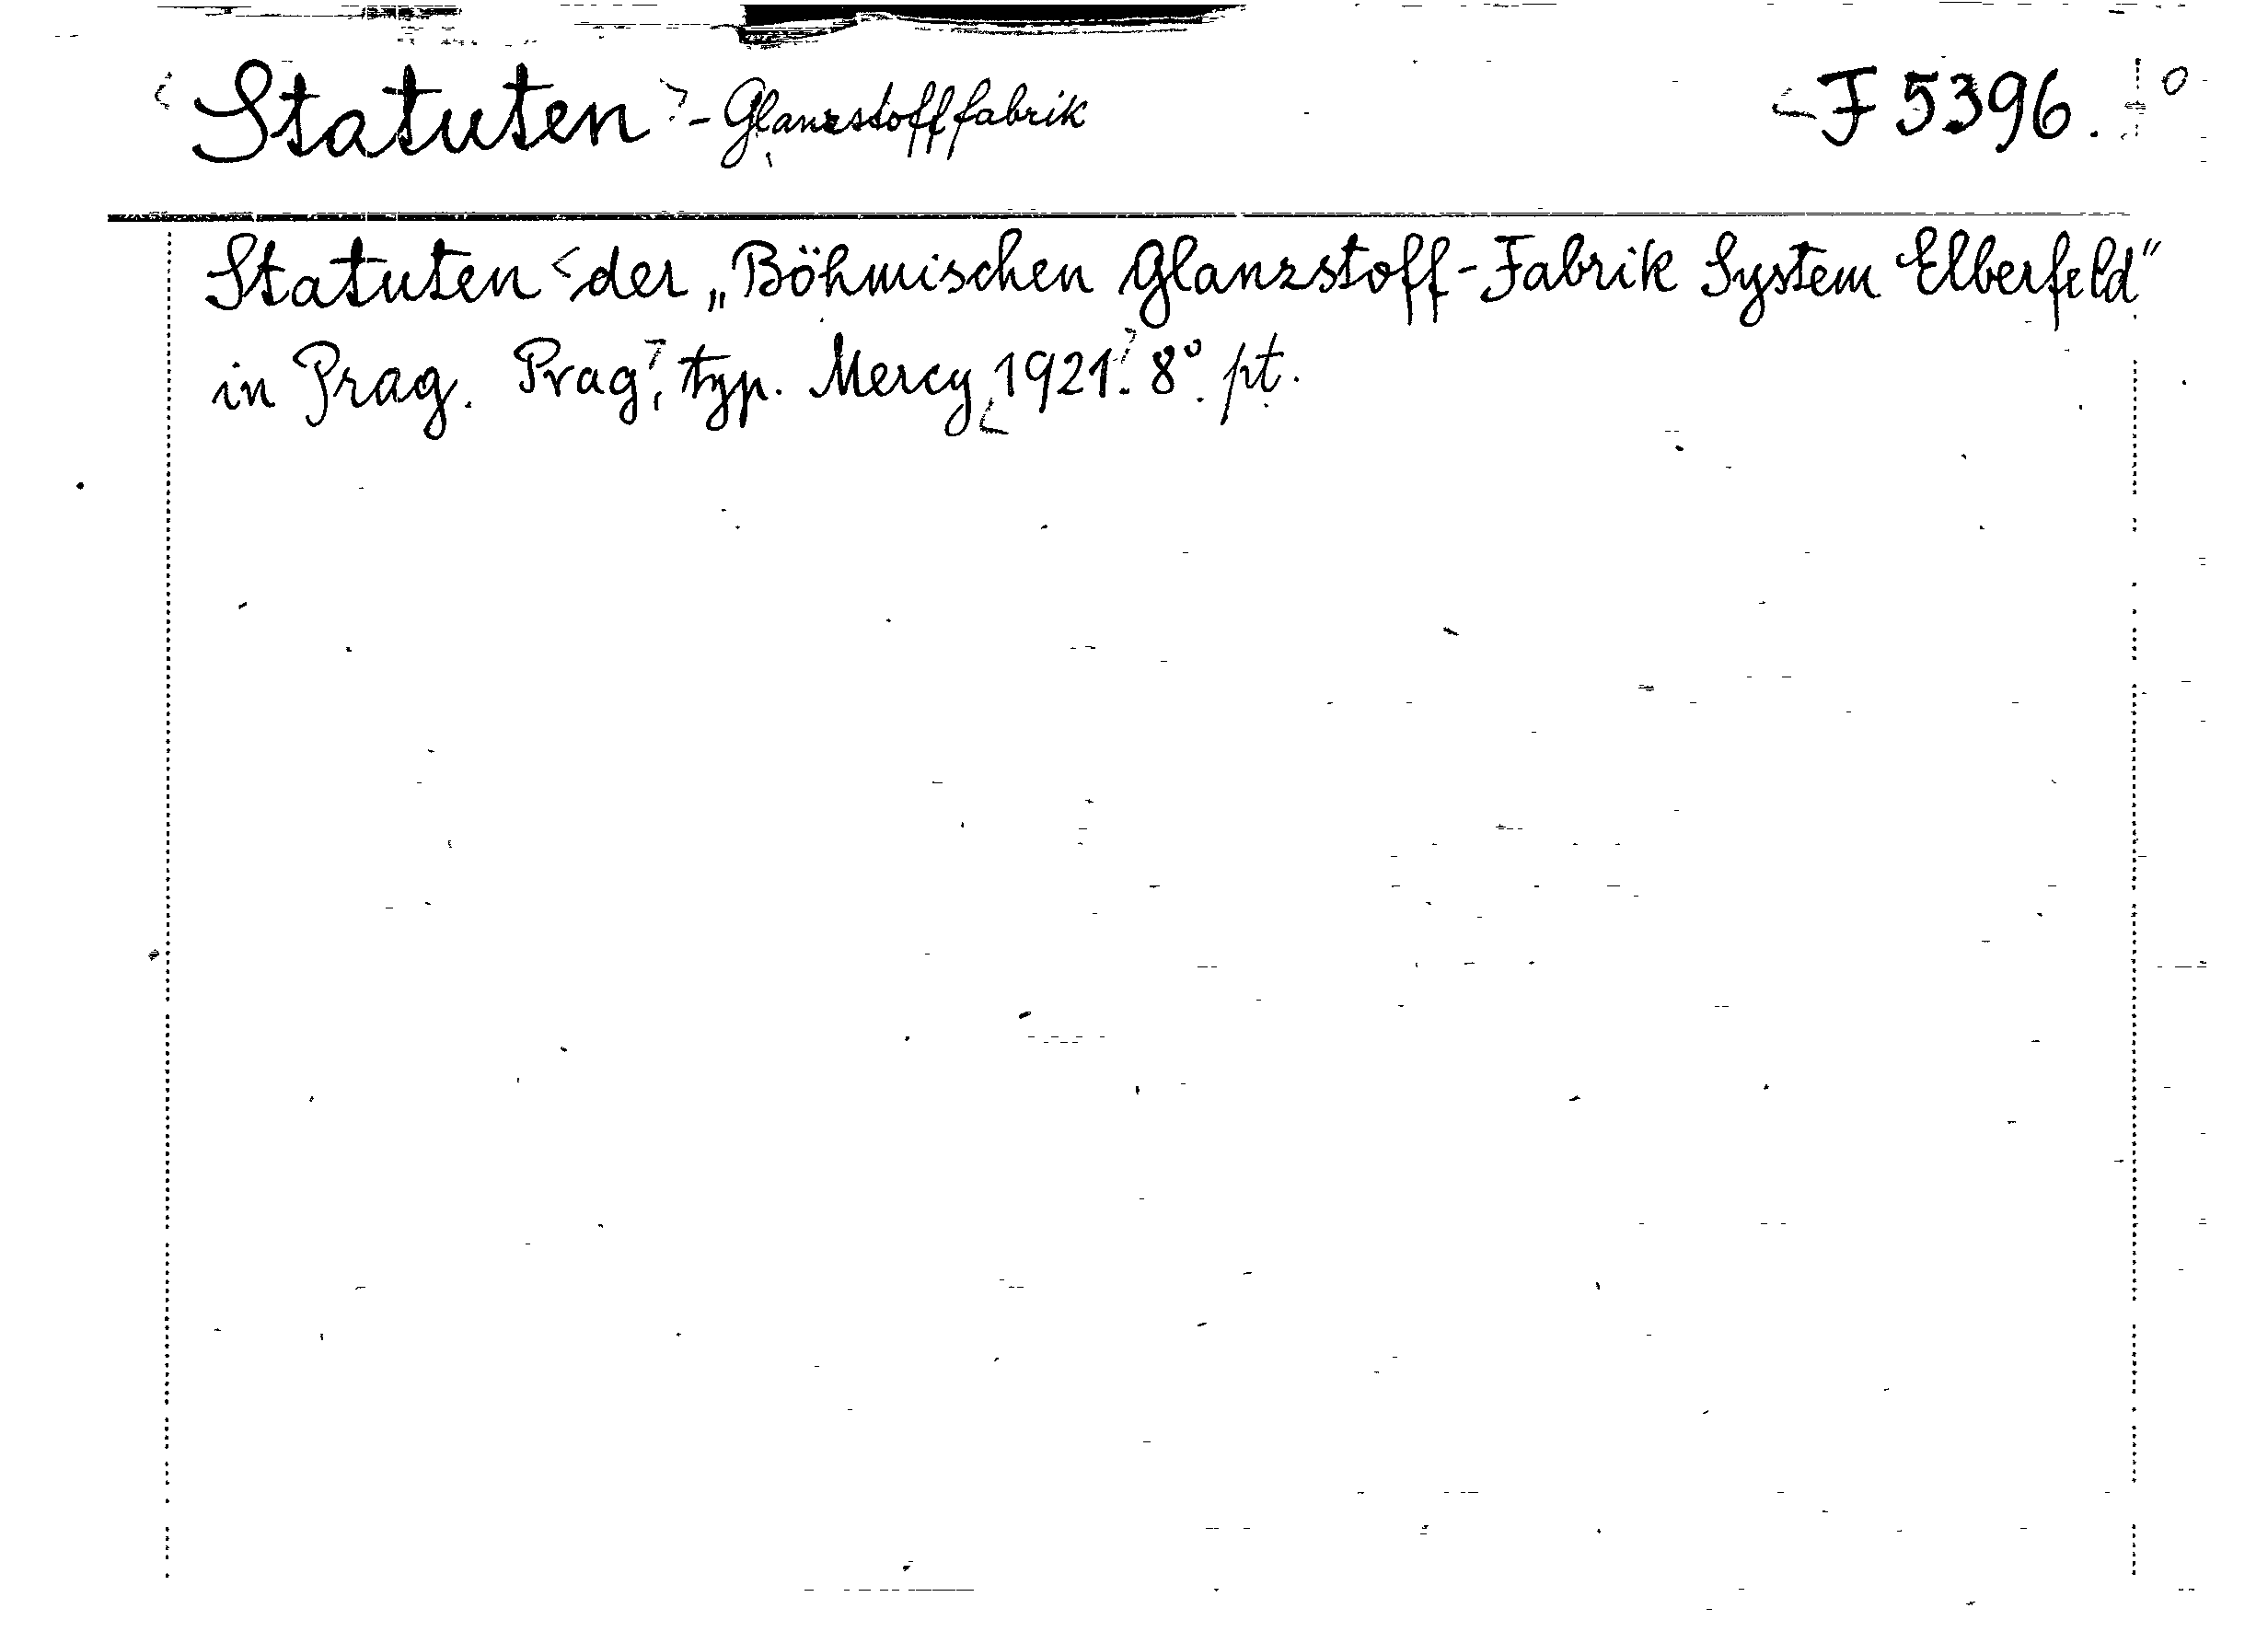 Statuten - Glanzstofffabrik F 5396.
Statuten der „Böhmischen Glanzstoff-Fabrik System Elberfeld“
in Prag. Prag, typ. Mercy 1921. 8°. pt.